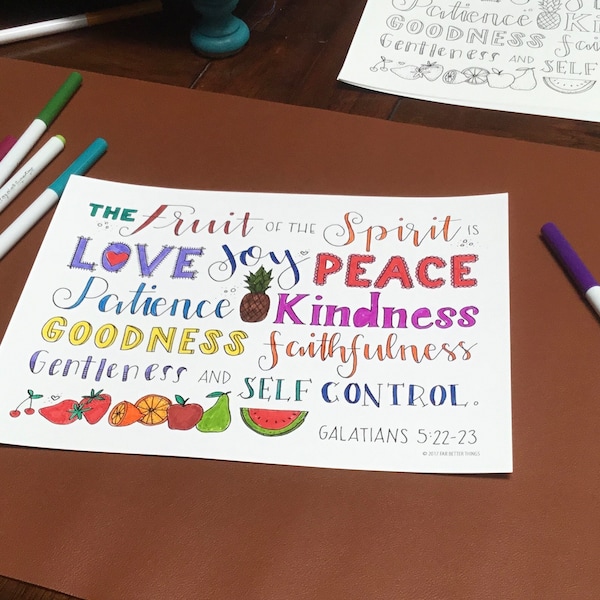 THE Fruit OF THE Spirit IS
LOVE Joy PEACE
Patience Kindness
GOODNESS faithfulness
Gentleness AND SELF CONTROL.
GALATIANS 5:22-23
© 2017 FAR BETTER THINGS
Patience K
GOODNESS fa
Gentleness AND SELF